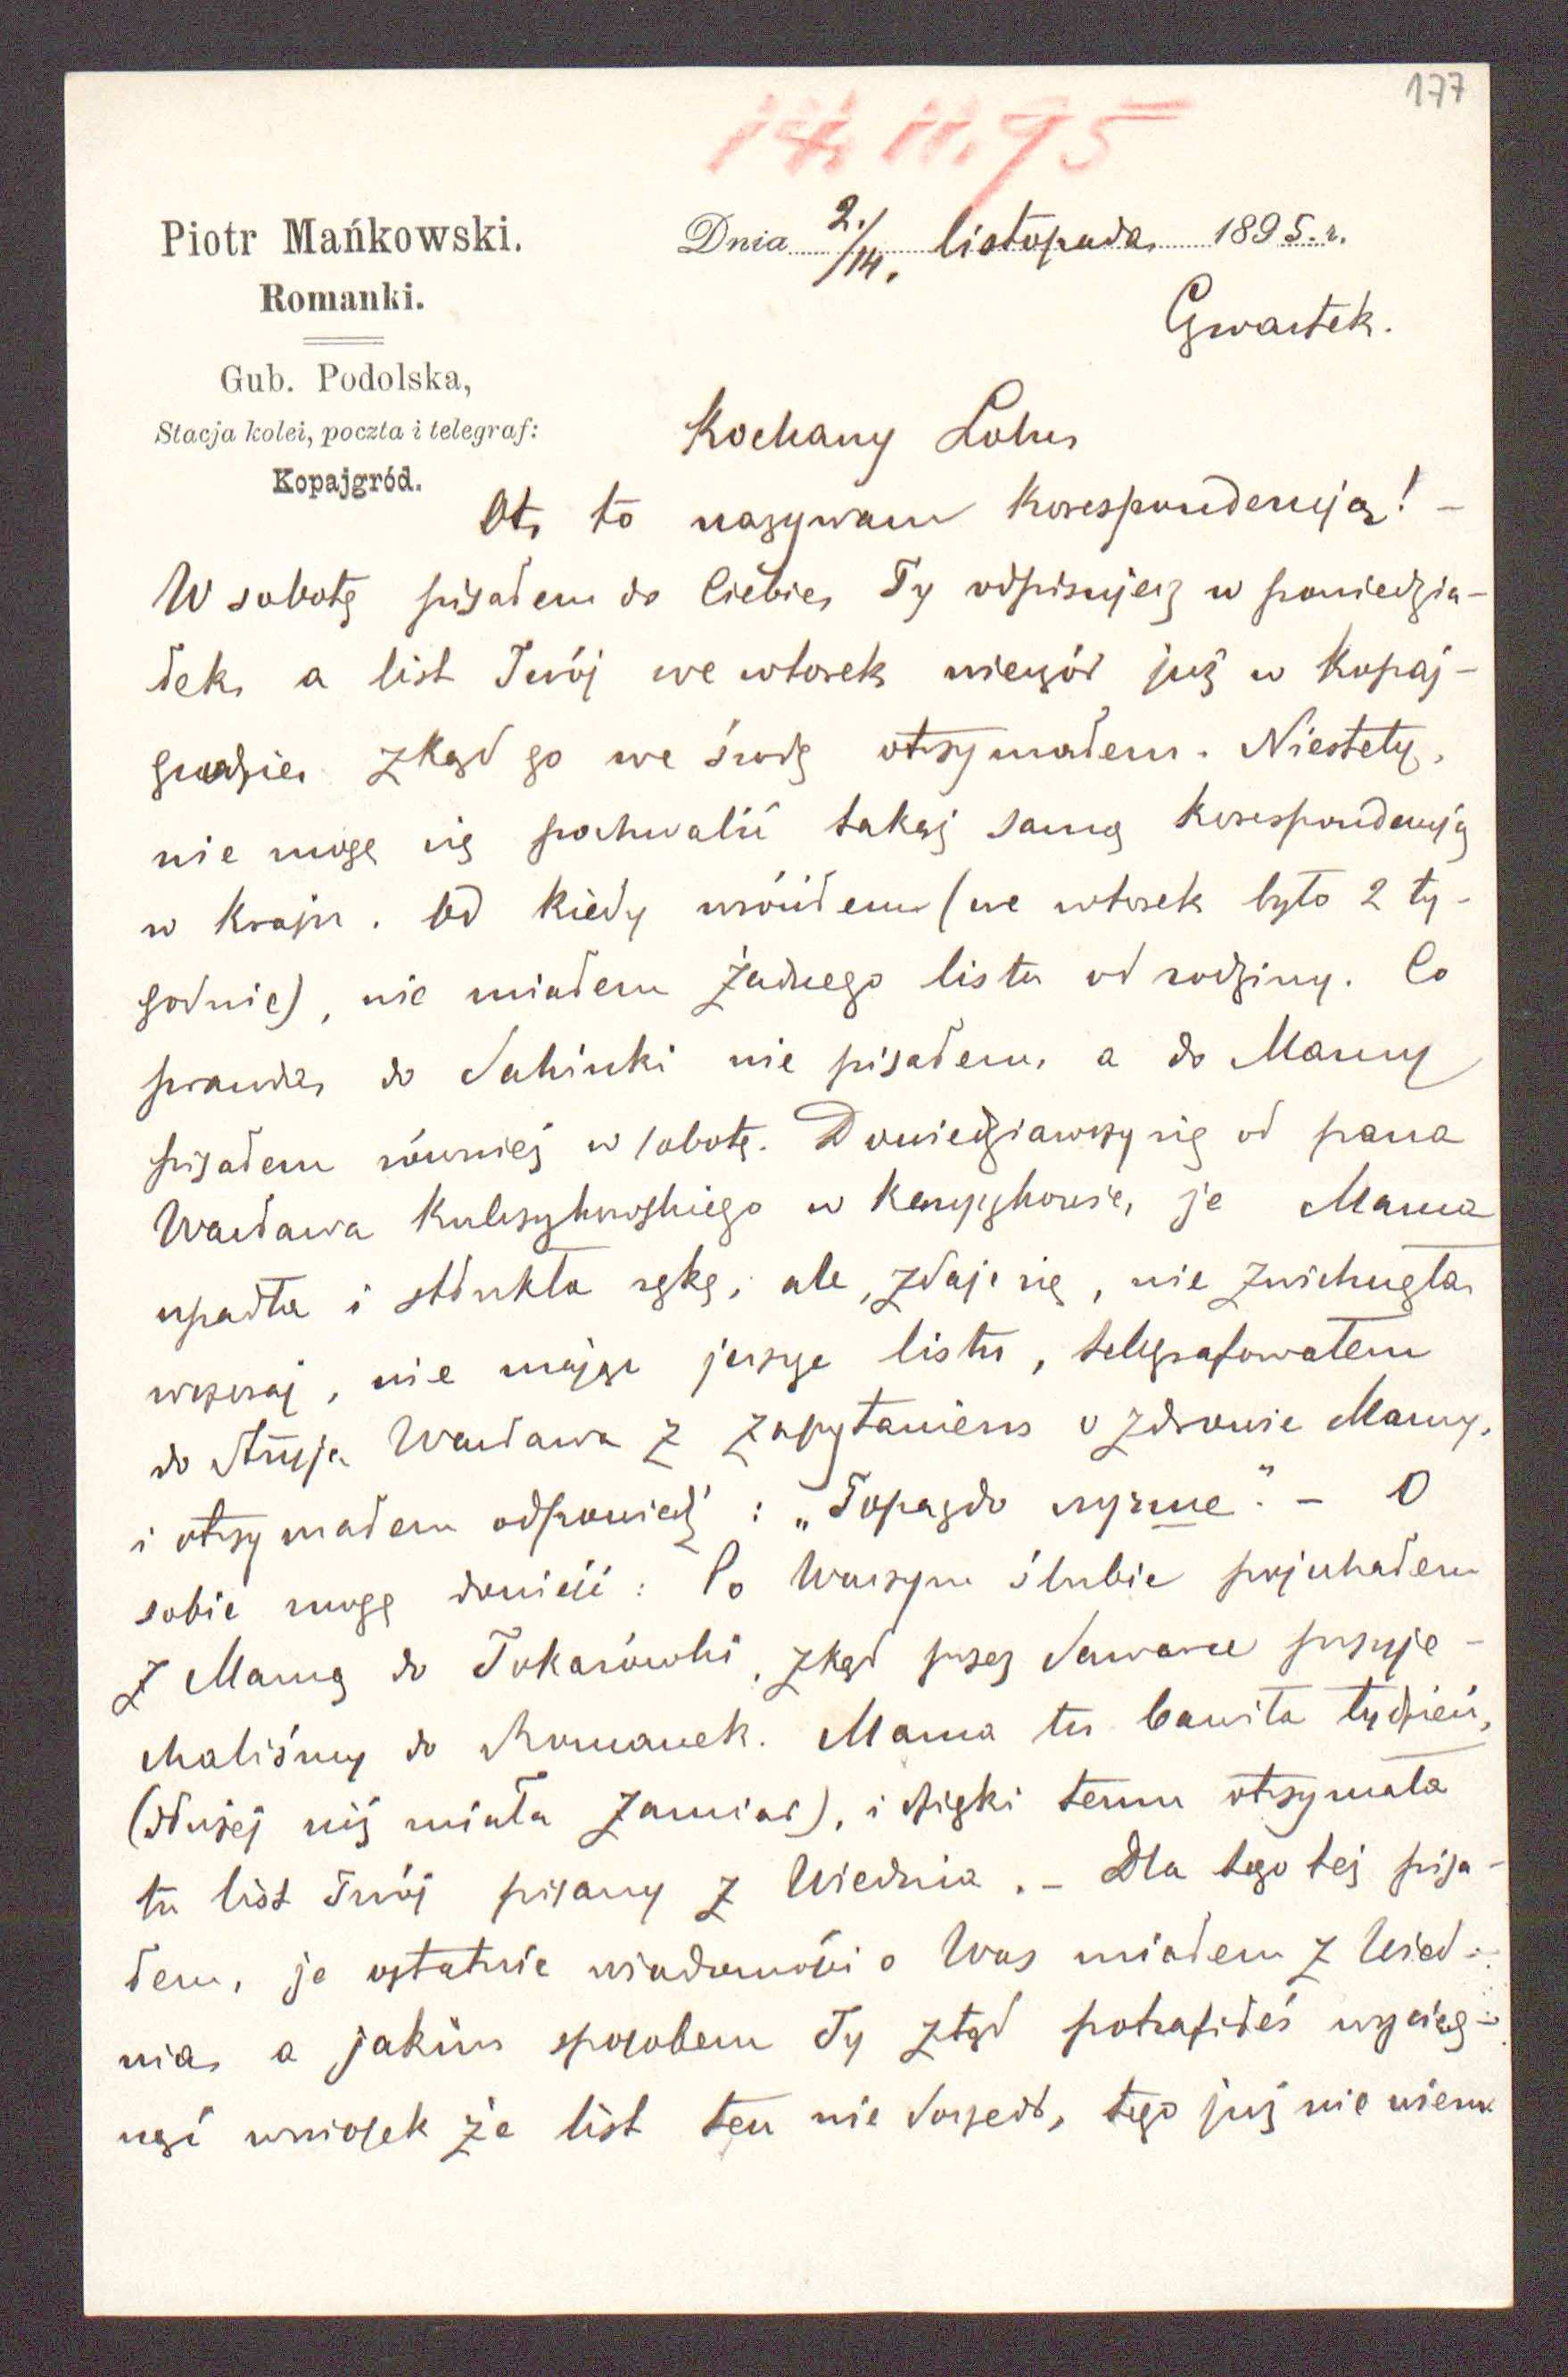 177
14. 11. 95
Piotr Mańkowski.
Romanki.
Gub. Podolska,
Stacja kolei, poczta i telegraf:
Kopajgród.
Dnia 2./14. listopada 1895. r.
Czwartek.
Kochany Lolu,
Ot, to nazywam korespondencją! –
W sobotę pisałem do Ciebie, Ty odpisujesz w poniedzia-
łek, a list Twój we wtorek wieczór już w Kopaj-
grodzie, zkąd go we środę otrzymałem. Niestety,
nie mogę się pochwalić takąż samą korespondencją
w kraju. Od kiedy wróciłem (we wtorek było 2 ty-
godnie), nie miałem żadnego listu od rodziny. Co
prawda, do Sabinki nie pisałem, a do Mamy
pisałem również w sobotę. Dowiedziawszy się od pana
Wacława w że Mama
upadła i stłukła rękę, ale, zdaje się, nie zwichnęła,
wczoraj, nie mając jeszcze listu, telegrafowałem
do Stryja Wacława z zapytaniem o zdrowie Mamy,
i otrzymałem odpowiedź: „ – O
sobie mogę donieść: Po Waszym ślubie pojechałem
z Mamą do Tokarówki, zkąd przez przyje-
chaliśmy do Romanek. Mama tu bawiła tydzień,
(dłużej niż miała zamiar), i dzięki temu otrzymała
tu list Twój pisany z Wiednia. – Dla tego też pisa-
łem, że ostatnie wiadomości o Was miałem z Wied-
nia, a jakim sposobem Ty ztąd potrafiłeś wyciąg-
nąć wniosek że list ten nie doszedł, tego już nie wiem